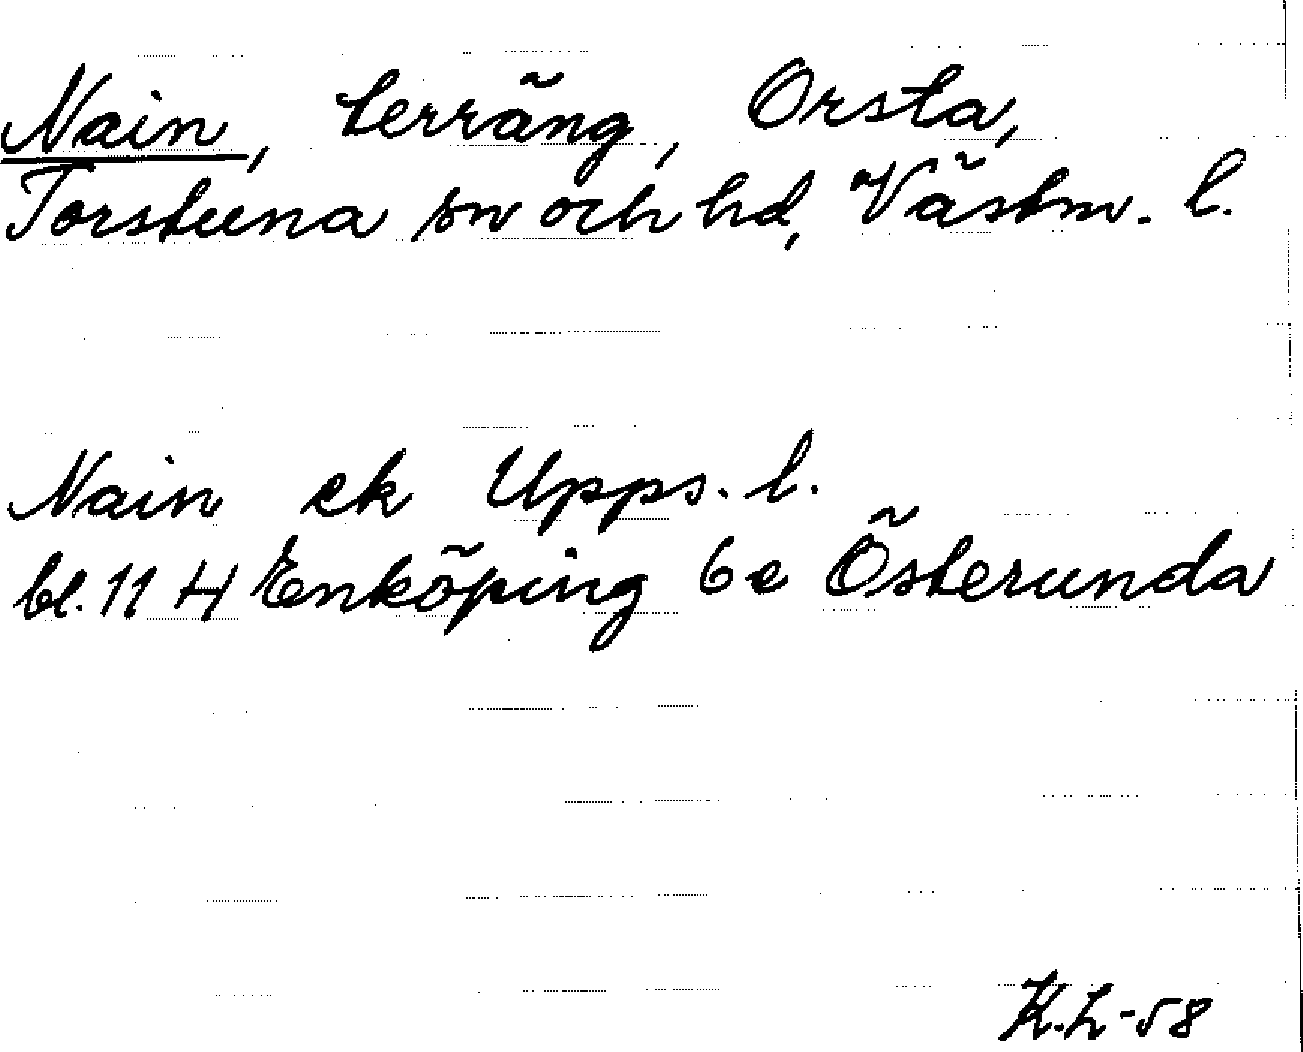 Nain, terräng, Orsta,
Torstuna sn och hd, Västm. l.
Nain ek Upps. l.
bl. 11 H Enköping 6e Österunda
K.L-58